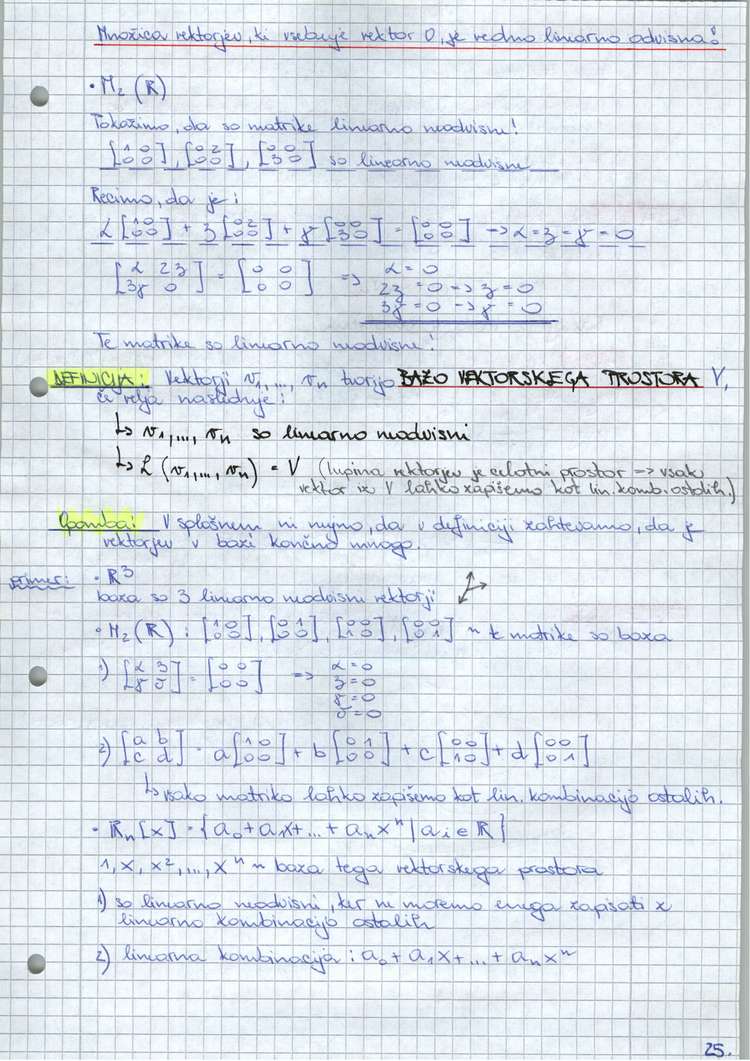 Množica vektorjev, ki vsebuje vektor 0, je vedno linearno odvisna!
• M₂ (ℝ)
Pokažimo, da so matrike linearno neodvisne!
[1 0; 0 0], [0 2; 0 0], [0 0; 3 0] so linearno neodvisne
Recimo, da je:
α [1 0; 0 0] + β [0 2; 0 0] + γ [0 0; 3 0] = [0 0; 0 0] → α = β = γ = 0
[α 2β; 3γ 0] = [0 0; 0 0] ⇒ α = 0
2β = 0 → β = 0
3γ = 0 → γ = 0
Te matrike so linearno neodvisne!
DEFINICIJA: Vektorji v₁, ..., vₙ tvorijo BAZO VEKTORSKEGA PROSTORA V,
če velja naslednje:
↳ v₁, ..., vₙ so linearno neodvisni
↳ ℒ (v₁, ..., vₙ) = V (lupina vektorjev je celotni prostor → vsak
vektor iz V lahko zapišemo kot lin. komb. ostalih.)
Opomba: V splošnem ni nujno, da v definiciji zahtevamo, da je
vektorjev v bazi končno mnogo.
Primer: • ℝ³
baza so 3 linearno neodvisni vektorji
• M₂ (ℝ) : [1 0; 0 0], [0 1; 0 0], [0 0; 1 0], [0 0; 0 1] ~ te matrike so baza
1) [α β; γ δ] = [0 0; 0 0] ⇒ α = 0
β = 0
γ = 0
δ = 0
2) [a b; c d] = a [1 0; 0 0] + b [0 1; 0 0] + c [0 0; 1 0] + d [0 0; 0 1]
↳ vsako matriko lahko zapišemo kot lin. kombinacijo ostalih.
• ℝₙ [x] = {a₀ + a₁x + ... + aₙxⁿ | aᵢ ∈ ℝ}
1, x, x², ..., xⁿ ~ baza tega vektorskega prostora
1) so linearno neodvisni, ker ne moremo enega zapisati z
linearno kombinacijo ostalih
2) linearna kombinacija : a₀ + a₁x + ... + aₙxⁿ
25.